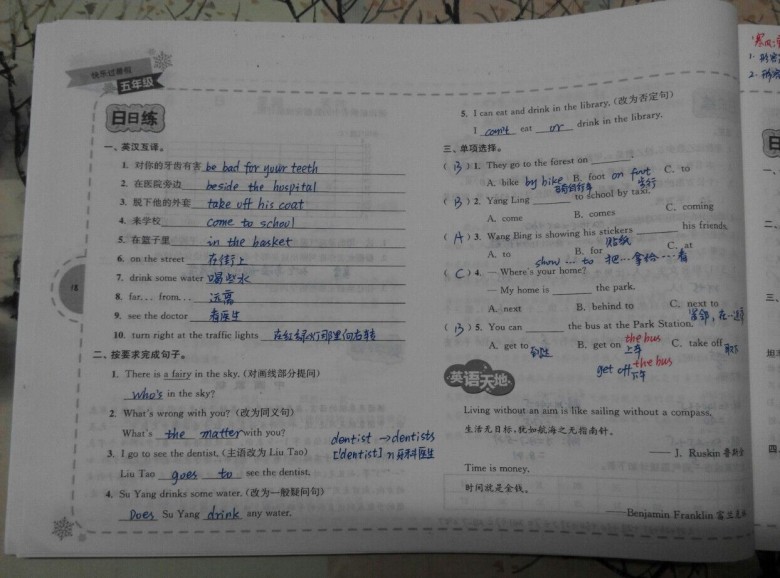 快乐过暑假
五年级
日日练
一、英汉互译。
1. 对你的牙齿有害 be bad for your teeth
2. 在医院旁边 beside the hospital
3. 脱下他的外套 take off his coat
4. 来学校 come to school
5. 在篮子里 in the basket
6. on the street 在街上
7. drink some water 喝些水
8. far... from... 远离
9. see the doctor 看医生
10. turn right at the traffic lights 在红绿灯那里向右转
二、按要求完成句子。
1. There is a fairy in the sky. (对画线部分提问)
Who's in the sky?
2. What's wrong with you? (改为同义句)
What's the matter with you?
3. I go to see the dentist. (主语改为 Liu Tao)
dentist → dentists
['dentist] n 牙科医生
Liu Tao goes to see the dentist.
4. Su Yang drinks some water. (改为一般疑问句)
Does Su Yang drink any water.
5. I can eat and drink in the library. (改为否定句)
I can't eat or drink in the library.
三、单项选择。
(B) 1. They go to the forest on ______.
A. bike by bike B. foot on foot C. to
步行
(B) 2. Yang Ling ______ to school by taxi.
A. come B. comes C. coming
(A) 3. Wang Bing is showing his stickers ______ his friends.
贴纸
A. to B. for C. at
show ... to 把...拿给...看
(C) 4. — Where's your home?
— My home is ______ the park.
A. next B. behind to C. next to
(B) 5. You can ______ the bus at the Park Station.
A. get to 到达 B. get on the bus 上车 C. take off
get off the bus
下车
英语天地
Living without an aim is like sailing without a compass.
生活无目标,犹如航海之无指南针。
— J. Ruskin
Time is money.
时间就是金钱。
——Benjamin Franklin